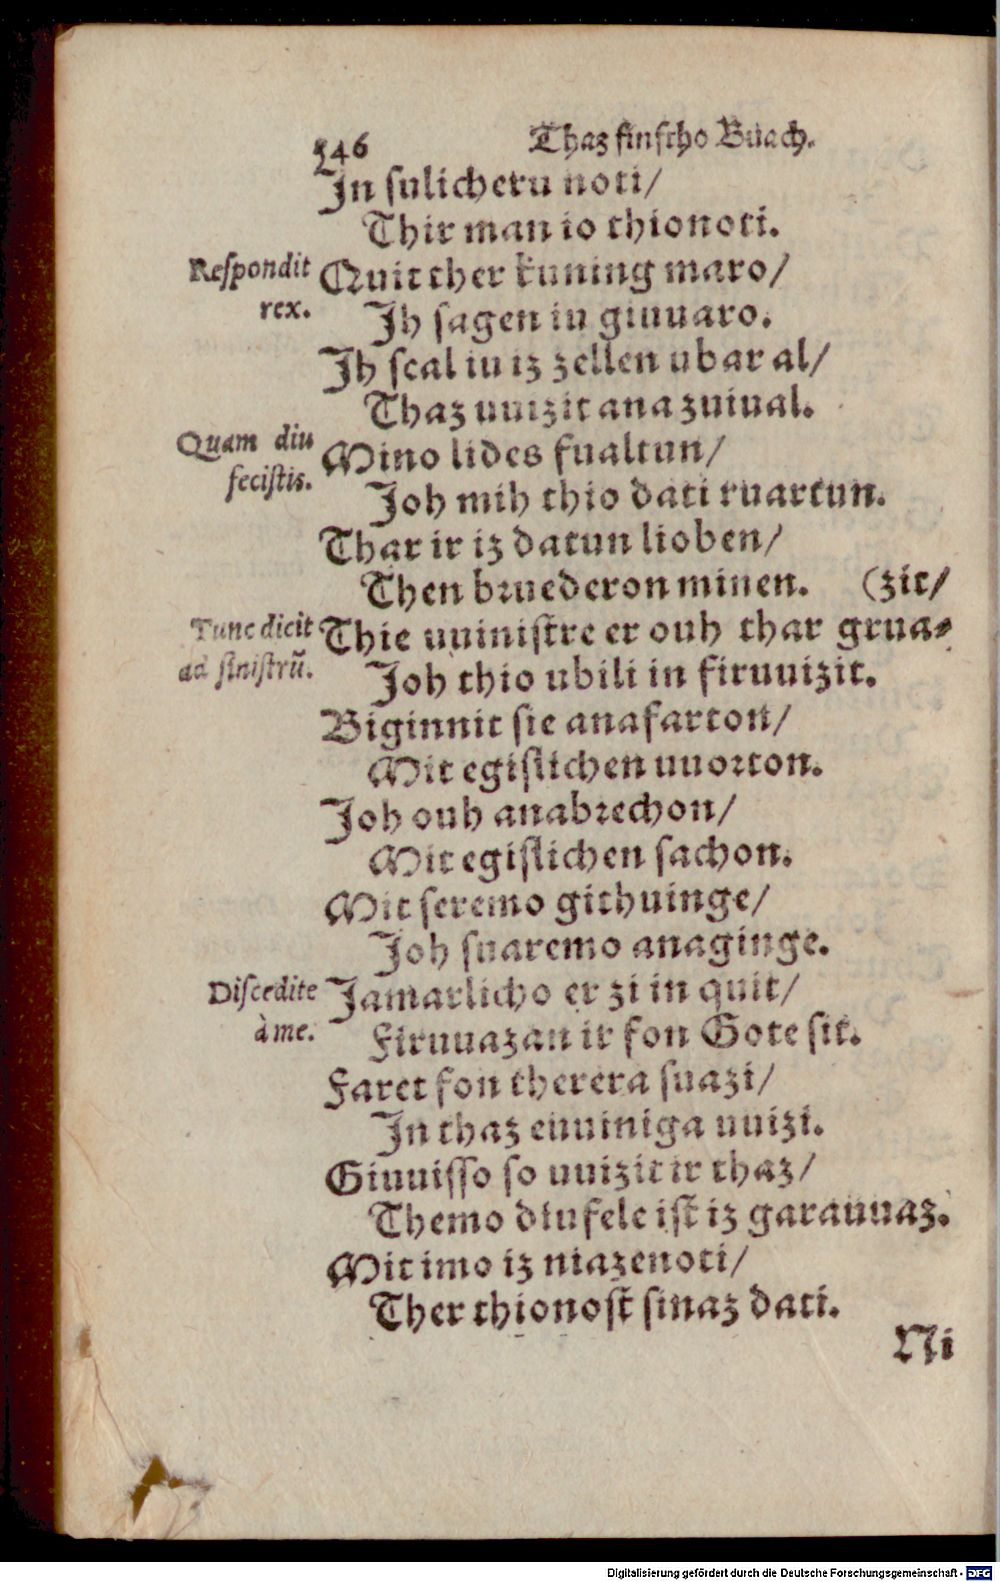 546 Thaz finftho Buach.
In sulicheru noti/
Thir man io thionoti.
Respondit rex.
Quit ther kuning maro/
Ih sagen iu giuuaro.
Ih scal iu iz zellen ubar al/
Thaz uuizit ana zuiual.
Quam diu fecistis.
Mino lides fualtun/
Joh mih thio dati ruartun.
Thar ir iz datun lioben/
Then bruederon minen. (zit/
Tunc dicit ad sinistrũ.
Thie uuinistre er ouh thar grua-
Joh thio ubili in firuuizit.
Biginnit sie anafarton/
Mit egislichen uuorton.
Joh ouh anabrechon/
Mit egislichen sachon.
Mit seremo githuinge/
Joh suaremo anaginge.
Discedite à me.
Jamarlicho er zi in quit/
Firuuazan ir fon Gote sit.
Faret fon therera suazi/
In thaz euuiniga uuizi.
Giuuisso so uuizit ir thaz/
Themo diufele ist iz garauuaz.
Mit imo iz niazenoti/
Ther thionost sinaz dati.
Ni
Digitalisierung gefördert durch die Deutsche Forschungsgemeinschaft - DFG